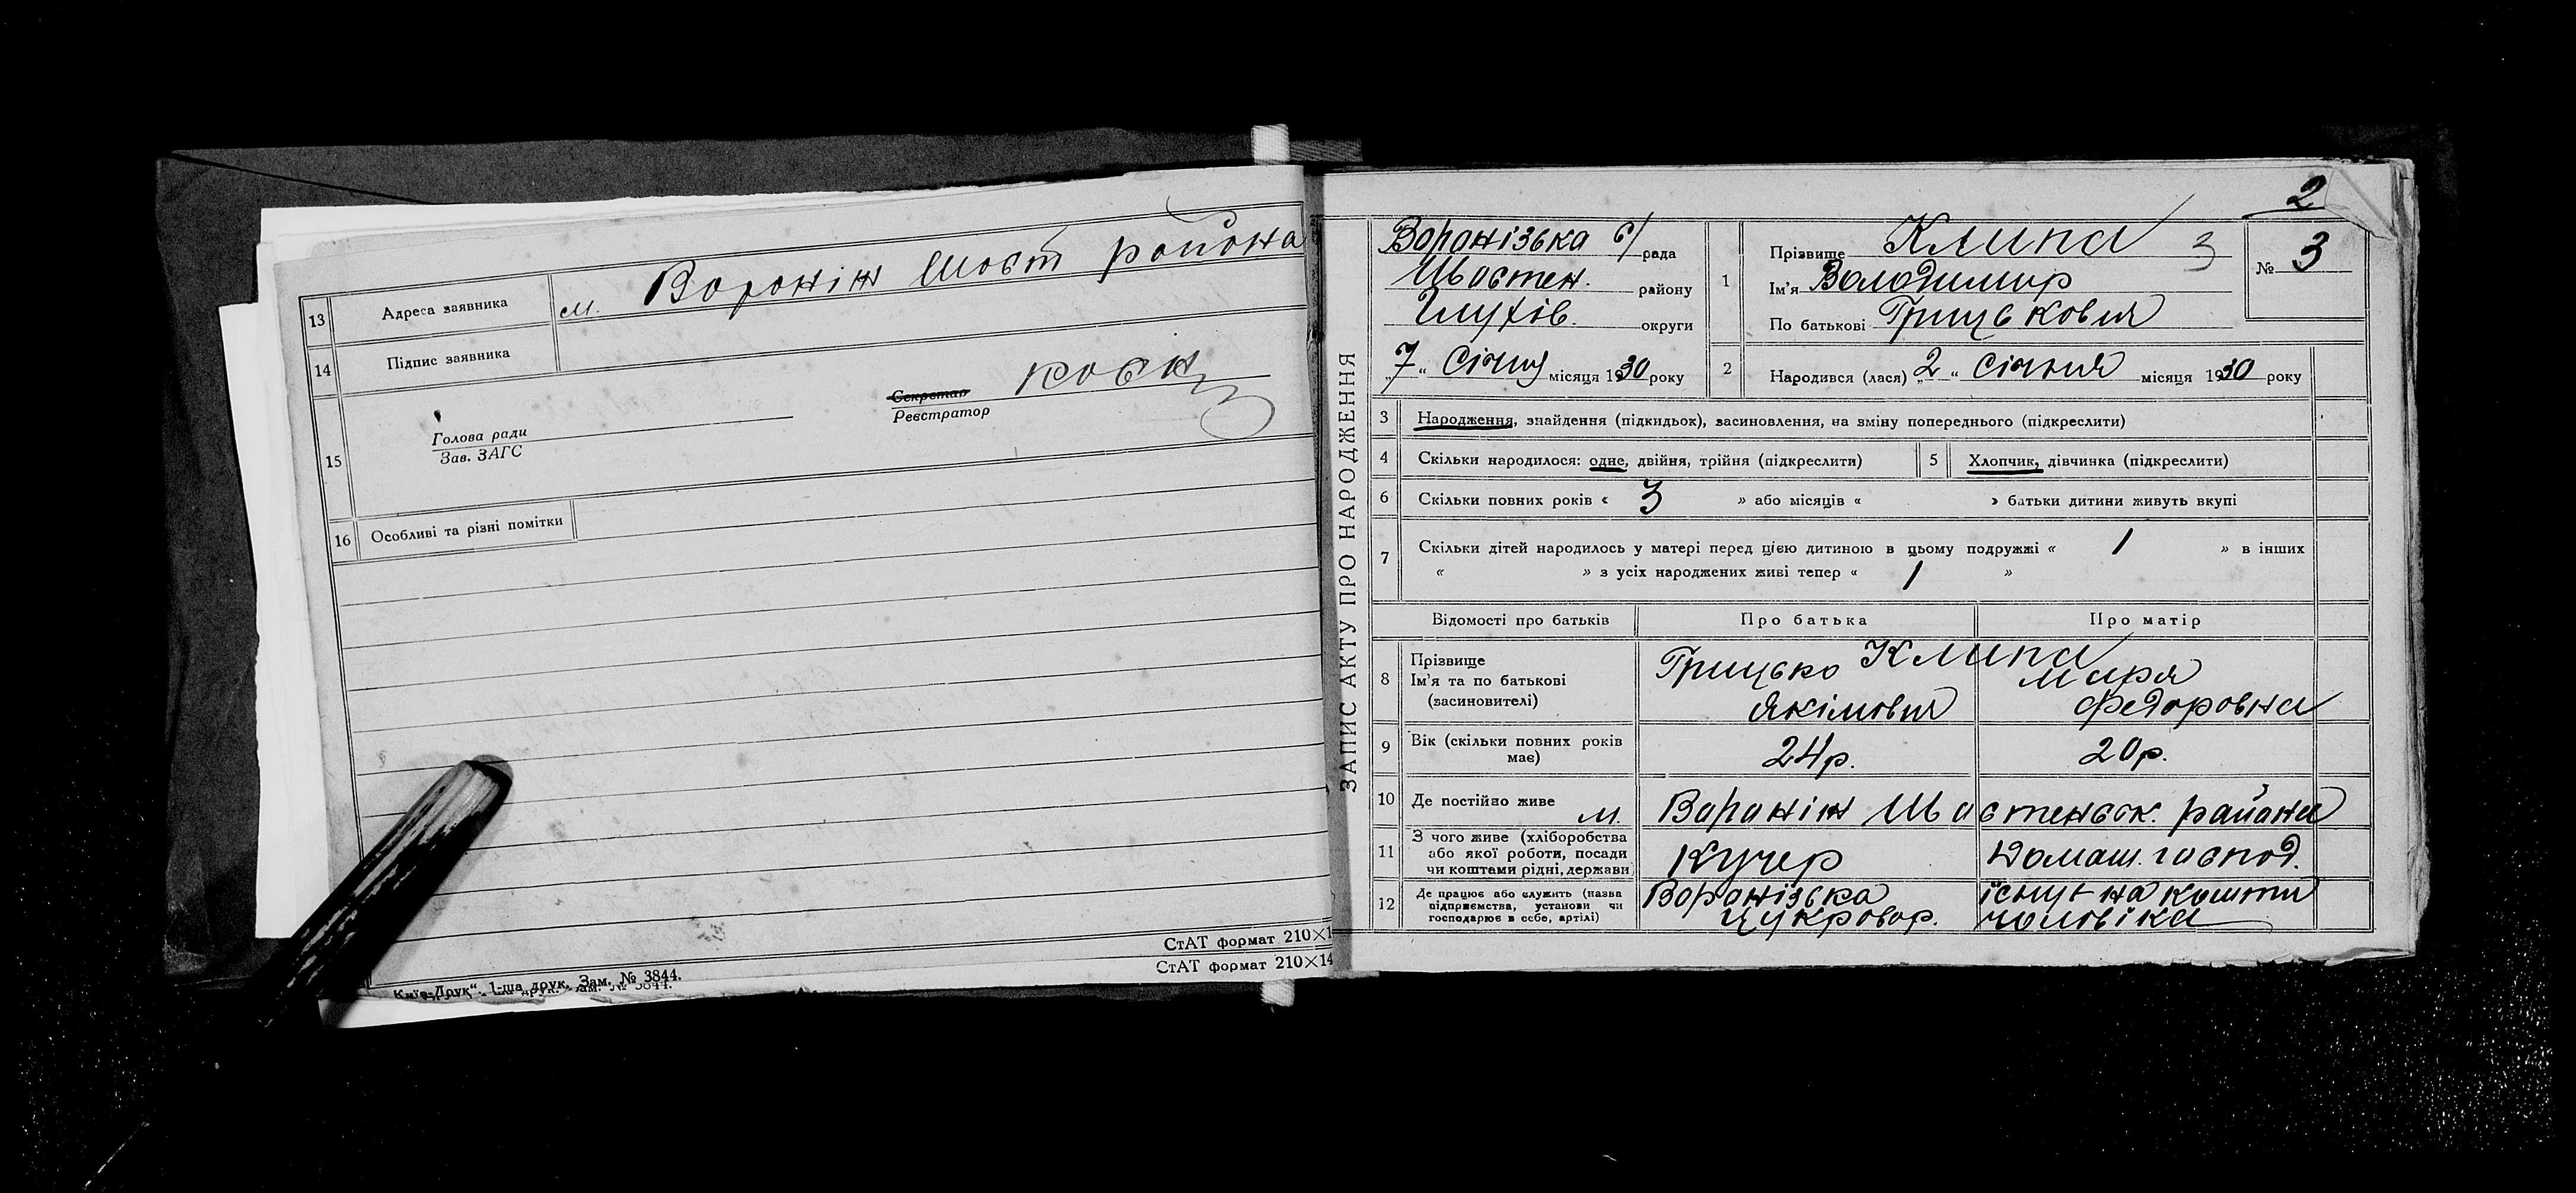 13 Адреса заявника м. Воронін Шост района
14 Підпис заявника
15 Голова ради
Зав. ЗАГС
Секретар
Реєстратор
16 Особливі та різні помітки
СтАТ формат 210×1
СтАТ формат 210×14
Київ-Друк“. 1-ша друк. Зам. № 3844.
2
ЗАПИС АКТУ ПРО НАРОДЖЕННЯ
Воронізька с/ рада
Шостен. району
Глухів. округи
„7“ Січня місяця 1930 року
1 Прізвище Клипа 3
Ім'я Володимир
По батькові Грицькович
№ 3
2 Народився (лася) „2“ Січня місяця 1930 року
3 Народження, знайдення (підкидьок), засиновлення, на зміну попереднього (підкреслити)
4 Скільки народилося: одне, двійня, трійня (підкреслити)
5 Хлопчик, дівчинка (підкреслити)
6 Скільки повних років « 3 » або місяців « » батьки дитини живуть вкупі
7 Скільки дітей народилось у матері перед цією дитиною в цьому подружжі « 1 » в інших
« » з усіх народжених живі тепер « 1 »
Відомості про батьків Про батька Про матір
8 Прізвище
Ім'я та по батькові
(засиновителі)
Клипа
Грицько
Якімович
Маря
Федоровна
9 Вік (скільки повних років
має)
24р. 20р.
10 Де постійно живе м. Воронін Шостенськ. района
11 З чого живе (хліборобства
або якої роботи, посади
чи коштами рідні, держави)
Кучер
Домаш. господ.
12 Де працює або служить (назва
підприємства, установи чи
господарює в себе, артілі)
Воронізька
цукровар.
існує на кошти
чоловіка